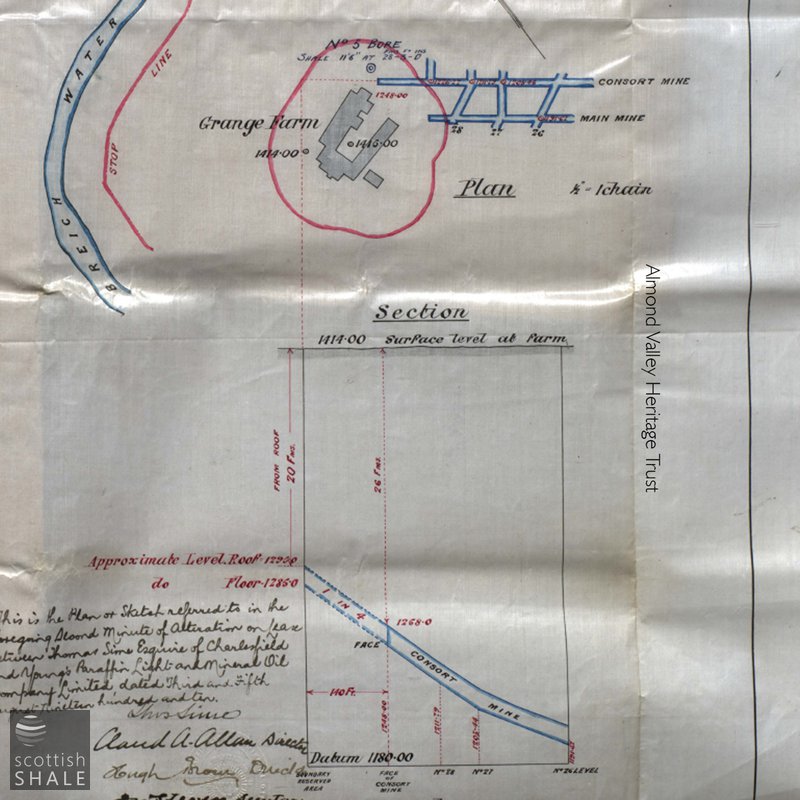 WATER
BREICH
LINE
STOP
No 5 BORE
SHALE 11'6" AT 28-5-0
CONSORT MINE
1248·00
MAIN MINE
28 27 26
Grange Farm
1414·00
1415·00
Plan
½" = 1 chain
Section
1414·00 Surface level at farm
FROM ROOF
20 Fms.
26 Fms.
Approximate Level. Roof-1295·0
do Floor-1285·0
1 IN 4
1258·0
FACE
CONSORT MINE
140 Ft.
1248·00
Datum 1180·00
BOUNDARY
RESERVED
AREA
FACE
OF
CONSORT
MINE
No 28
No 27
No 26 LEVEL
This is the Plan or Sketch referred to in the
foregoing Second Minute of Alteration on Lease
between Thomas Sime Esquire of Charlesfield
and Young's Paraffin Light and Mineral Oil
Company Limited dated Third and Fifth
nineteen hundred and ten.
Thos Sime
Claud A. Allan Director
Hugh
Almond Valley Heritage Trust
scottish
SHALE